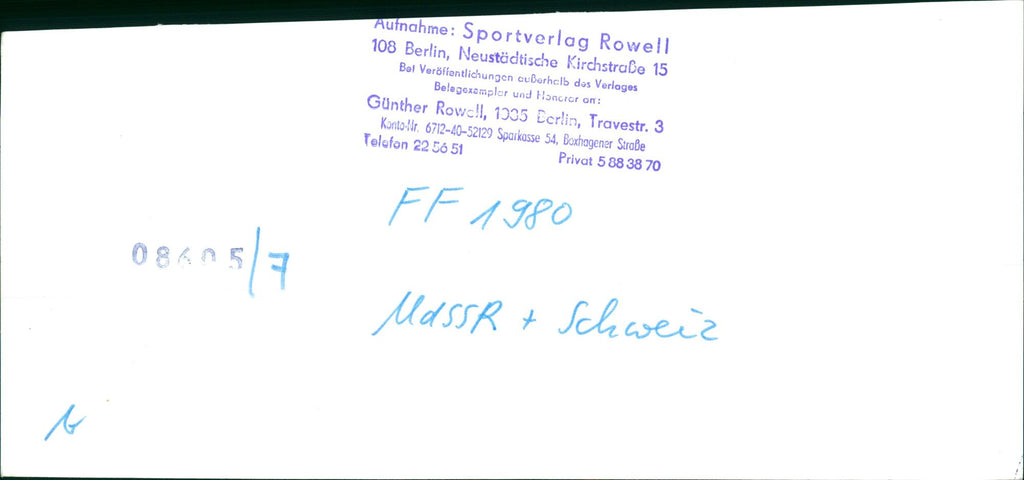 Aufnahme: Sportverlag Rowell
108 Berlin, Neustädtische Kirchstraße 15
Bei Veröffentlichungen außerhalb des Verlages
Belegexemplar und Honorar an:
Günther Rowell, 1035 Berlin, Travestr. 3
Konto-Nr. 6712-40-52129 Sparkasse 54, Boxhagener Straße
Telefon 22 56 51 Privat 5 88 38 70
FF 1980
08605/7
UdSSR + Schweiz